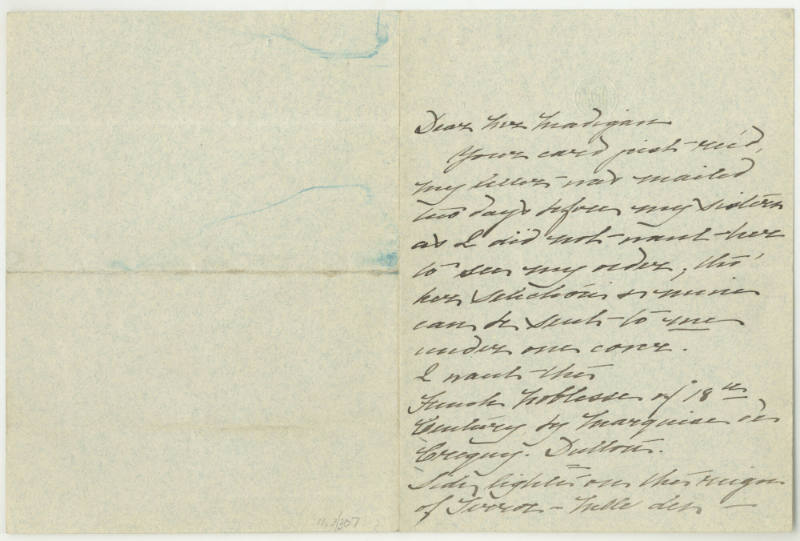 Dear Mr Madigan
Your card just rec'd,
my letter was mailed
two days before my sisters
as I did not want her
to see my order, tho'
her selections & mine
can be sent to me
under one cover.
I want the
French Noblesse of 18th
Century by Marquise de
Crequy. Dutton.
Side lights on the reign
of Terror – Mlle des –